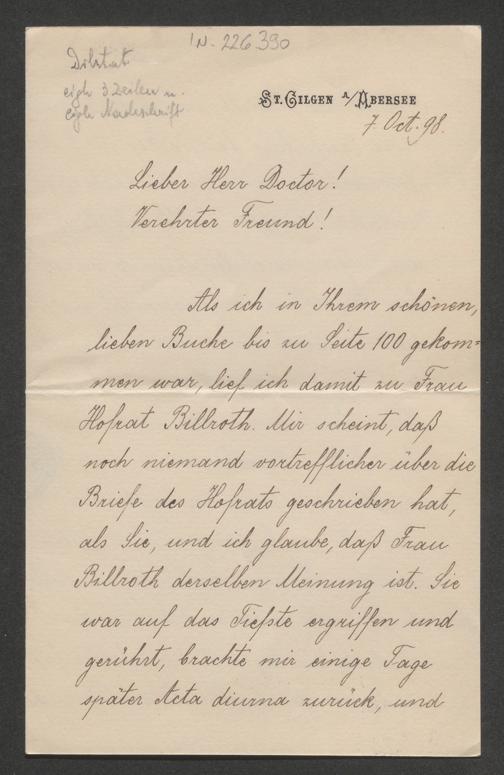 IN. 226.390
Diktat
eigh 3 Zeilen u.
eigh Nachschrift
ST. GILGEN A/ABERSEE
7 Oct. 98.
Lieber Herr Doctor!
Verehrter Freund!
Als ich in Ihrem schönen,
lieben Buche bis zu Seite 100 gekom=
men war, lief ich damit zu Frau
Hofrat Billroth. Mir scheint, daß
noch niemand vortrefflicher über die
Briefe des Hofrats geschrieben hat,
als Sie, und ich glaube, daß Frau
Billroth derselben Meinung ist. Sie
war auf das Tiefste ergriffen und
gerührt, brachte mir einige Tage
später Acta diurna zurück, und